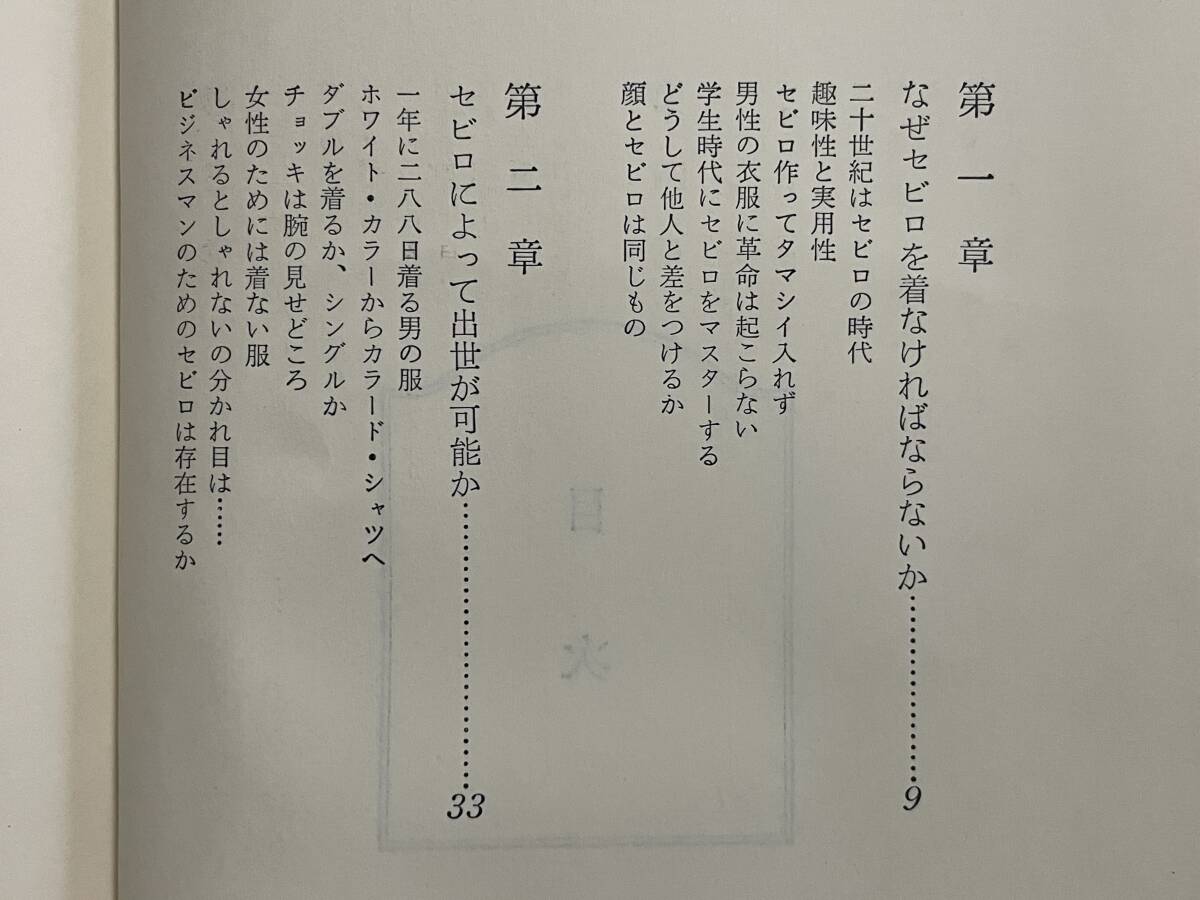 第一章
なぜセビロを着なければならないか……………………9
二十世紀はセビロの時代
趣味性と実用性
セビロ作ってタマシイ入れず
男性の衣服に革命は起こらない
学生時代にセビロをマスターする
どうして他人と差をつけるか
顔とセビロは同じもの
第二章
セビロによって出世が可能か……………………………33
一年に二八八日着る男の服
ホワイト・カラーからカラード・シャツへ
ダブルを着るか、シングルか
チョッキは腕の見せどころ
女性のためには着ない服
しゃれるとしゃれないの分かれ目は……
ビジネスマンのためのセビロは存在するか
目次